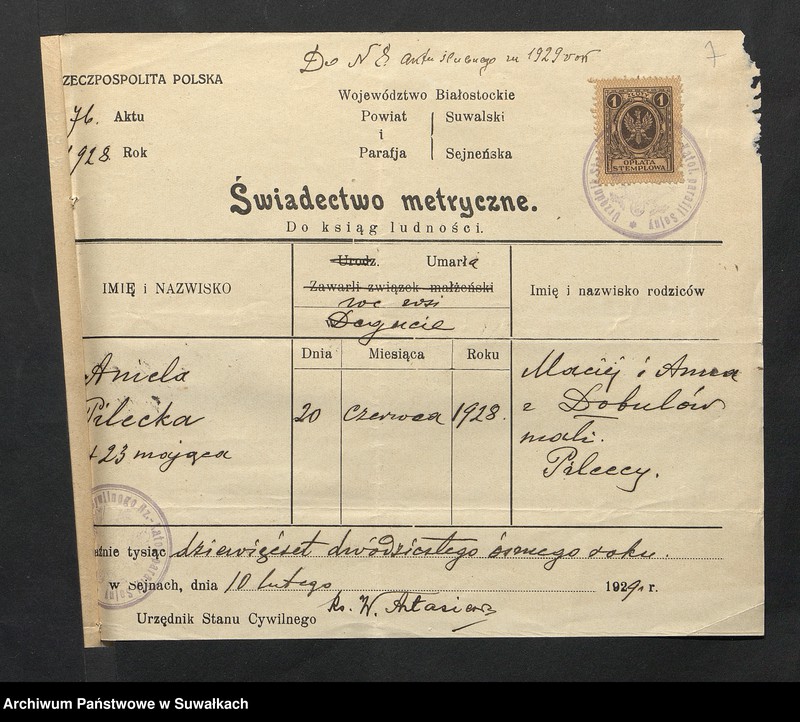 Do N 8. aktu ślubnego za 1929 rok
7
ZECZPOSPOLITA POLSKA
76. Aktu
1928 Rok
Województwo Białostockie
Powiat Suwalski
i
Parafja Sejneńska
1 ZŁOTY 1
OPŁATA
STEMPLOWA
Świadectwo metryczne.
Do ksiąg ludności.
IMIĘ i NAZWISKO
Urodz. Umarła
Zawarli związek małżeński
we wsi
Degucie
Imię i nazwisko rodziców
Dnia Miesiąca Roku
Aniela
Pilecka
23 mająca
20 czerwca 1928.
Maciej i Anna
z Dobulów
mał.
Pileccy.
tysiąc dziewięćset dwudziestego ósmego roku.
w Sejnach, dnia 10 lutego 1929 r.
Urzędnik Stanu Cywilnego ks. W.
Archiwum Państwowe w Suwałkach